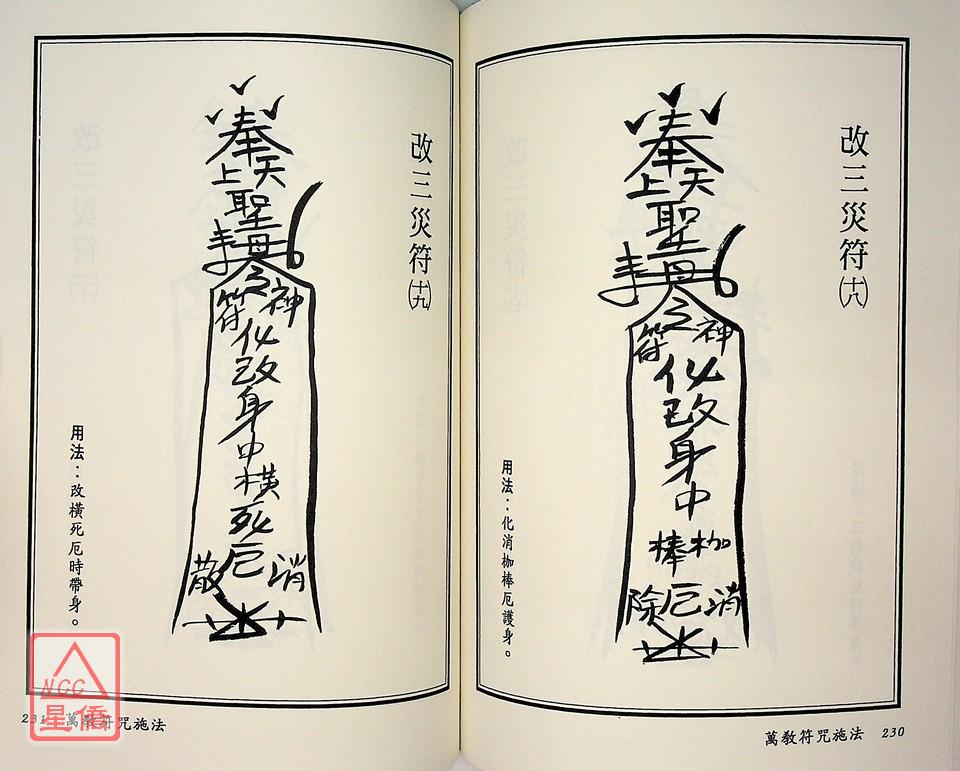 改三災符㈩八
奉
天上
聖母
李
令
神符
化改身中
枷棒
消厄除
用法：化消枷棒厄護身。
萬教符咒施法 230
改三災符㈩九
奉
天上
聖母
李
令
神符
化改身中橫死厄
消散
用法：改橫死厄時帶身。
231 萬教符咒施法
NCC
星僑